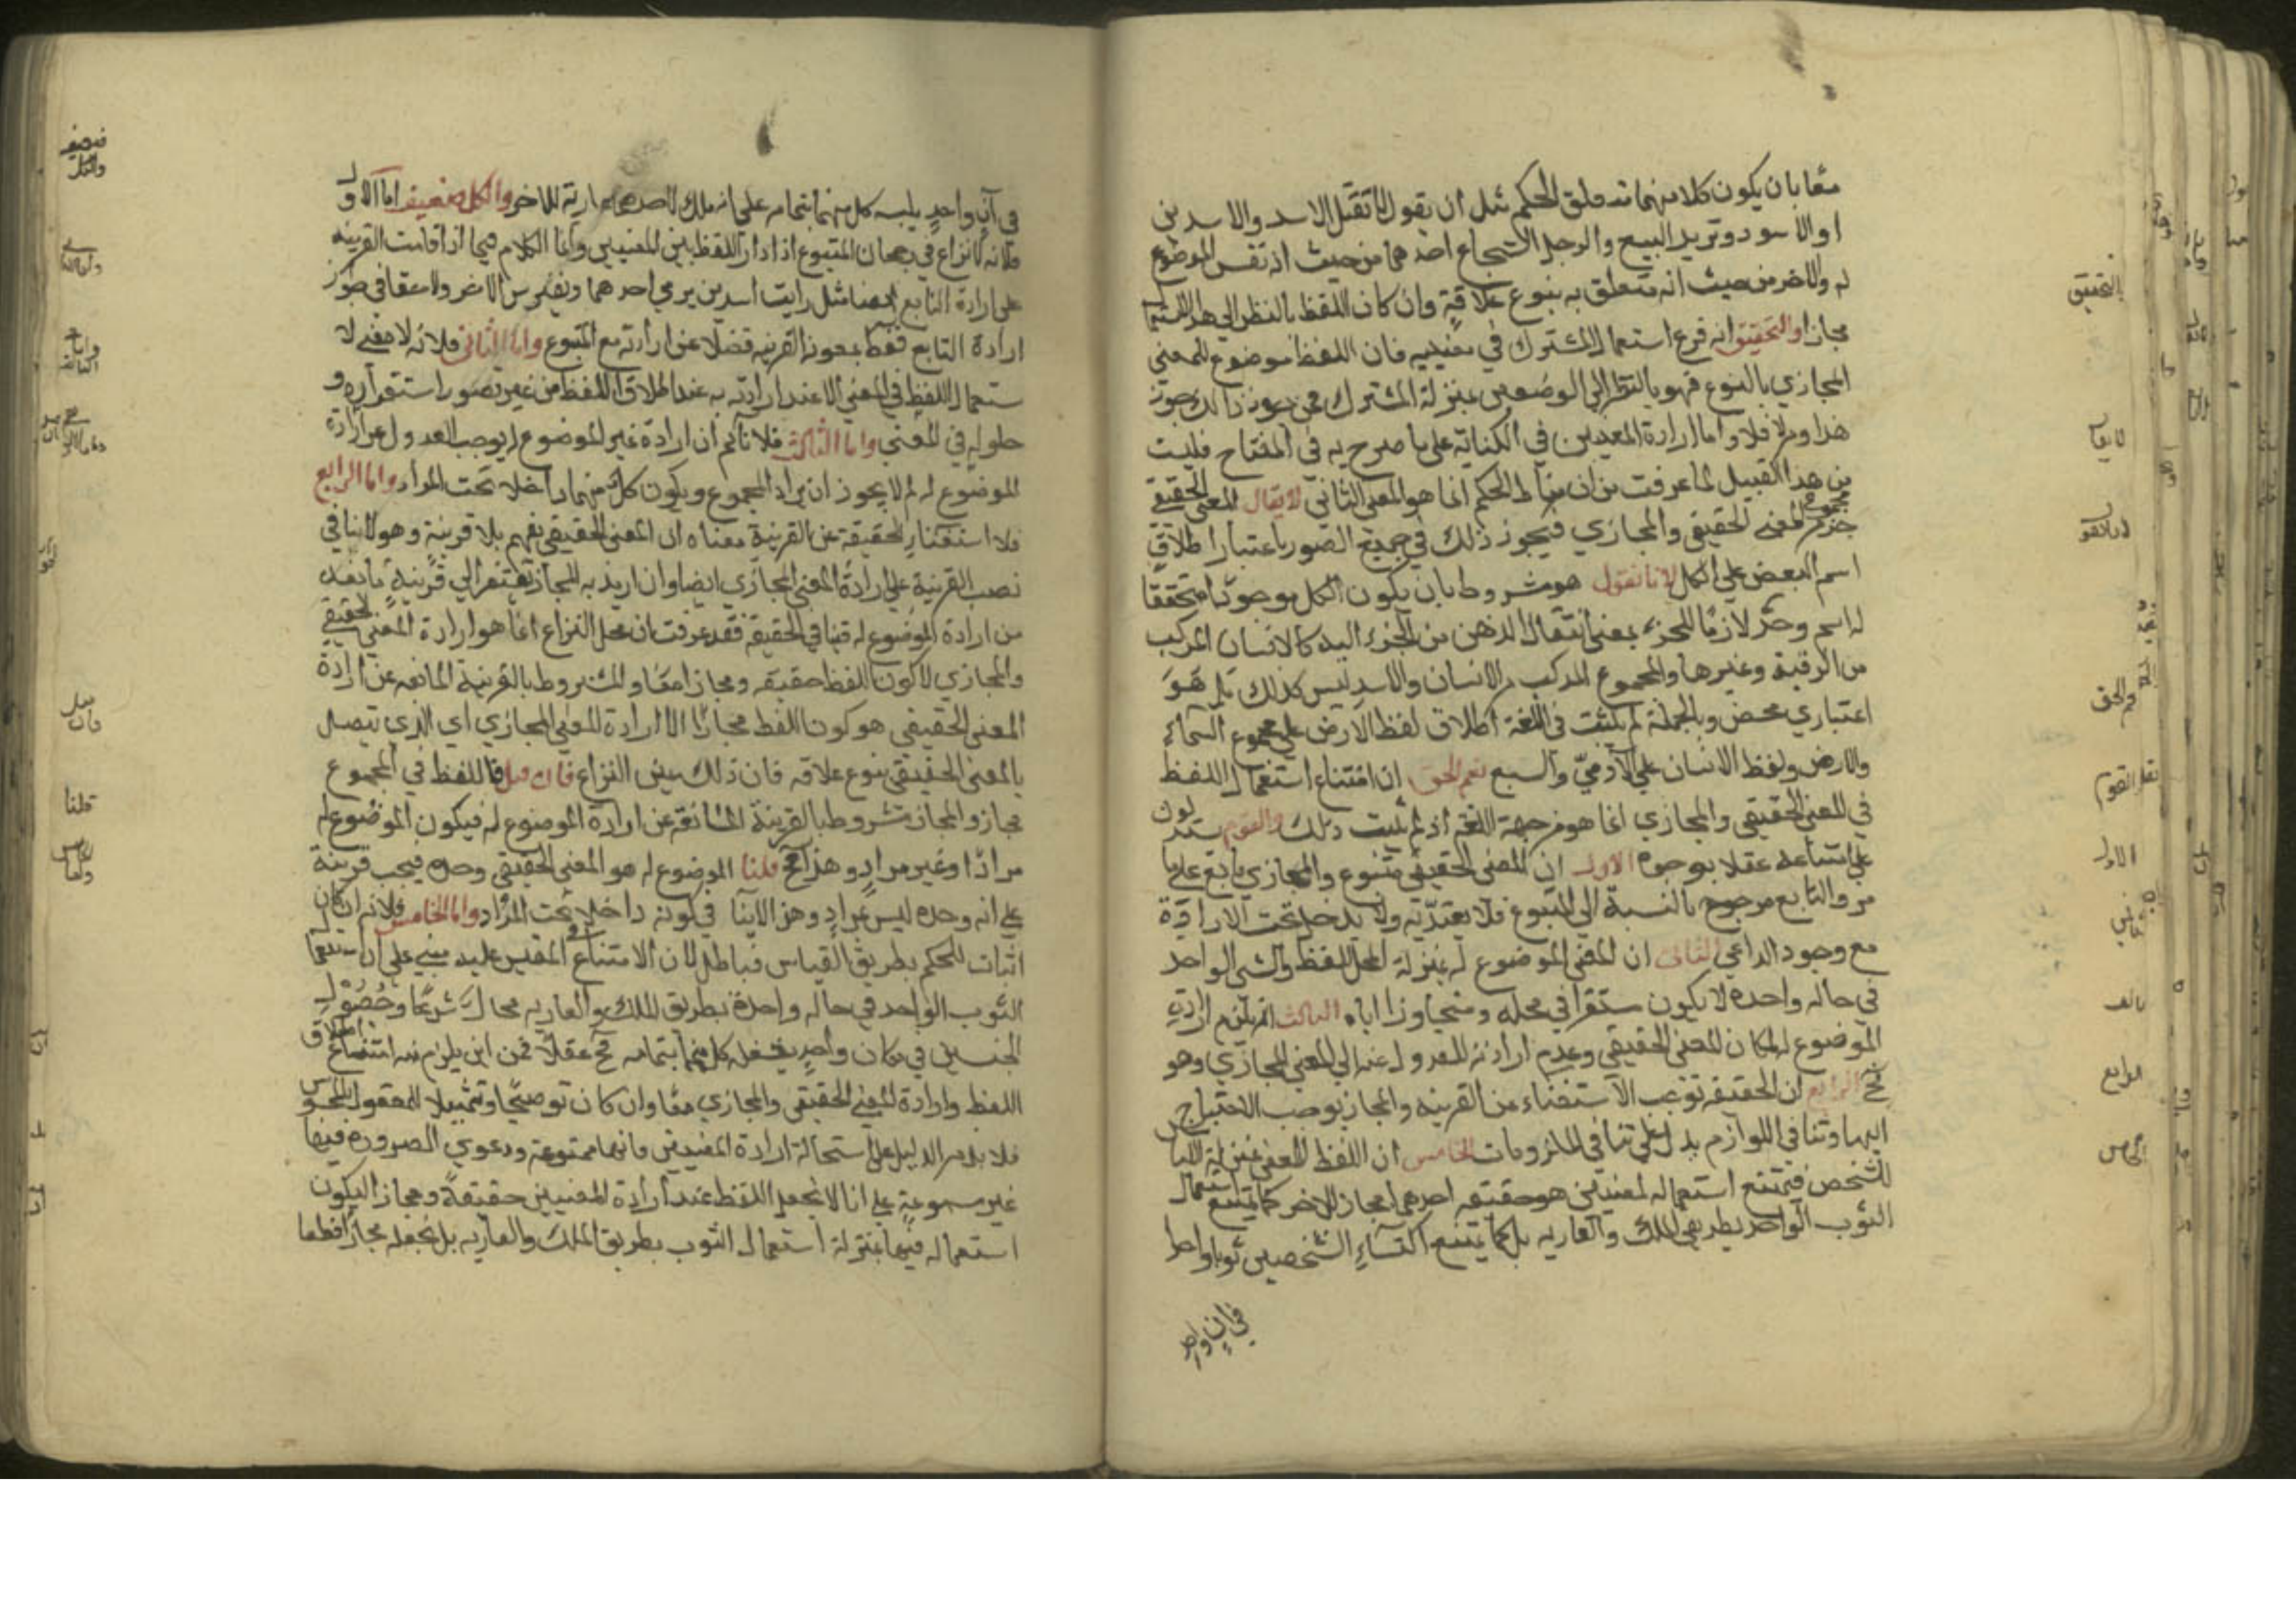 معا بان يكون كل منهما متعلق الحكم مثل ان يقول لا تقتل الاسد والاسدين
او الاسود وتريد السبع والرجل الشجاع احدهما من حيث انه نفس الموضوع
له والاخر من حيث انه متعلق به بنوع علاقة وان كان اللفظ بالنظر الى هذا الاستعمال
مجازا والتحقيق انه فرع استعمال المشترك في معنييه فان اللفظ موضوع للمعنى
المجازي بالنوع فهو بالنظر الى الوضعين بمنزلة المشترك فمن جوز ذلك جوز
هذا ومن لا فلا واما ارادة المعنيين في الكناية على ما صرح به في المفتاح فليست
من هذا القبيل لما عرفت من ان مناط الحكم انما هو المعنى الثاني لا يقال المعنى الحقيقي
جزء من مجموع المعنى الحقيقي والمجازي فيجوز ذلك في جميع الصور باعتبار اطلاق
اسم البعض على الكل لانا نقول هو مشروط بان يكون الكل موجودا متحققا
له اسم وحد لازما للجزء بمعنى انتقال الذهن من الجزء اليه كالانسان المركب
من الرقبة وغيرها والمجموع المركب من الانسان والاسد ليس كذلك بل هو
اعتباري محض وبالجملة لم يثبت في اللغة اطلاق لفظ الارض على مجموع السماء
والارض ولفظ الانسان على الآدمي والسبع نعم الحق ان امتناع استعمال اللفظ
في المعنى الحقيقي والمجازي انما هو من جهة اللغة اذ لم يثبت ذلك والقوم يستدلون
على امتناعه عقلا بوجوه الاول ان المعنى الحقيقي متبوع والمجازي تابع على ما
مر والتابع مرجوح بالنسبة الى المتبوع فلا يعتد به ولا يدخل تحت الارادة
مع وجود الداعي الثاني ان المعنى الموضوع له بمنزلة المحل للفظ والشي الواحد
في حالة واحدة لا يكون مستقرا في محله ومتجاوزا اياه الثالث انه يلزم ارادة
الموضوع له لمكان المعنى الحقيقي وعدم ارادته للعدول عنه الى المعنى المجازي وهو
مح الرابع ان الحقيقة توجب الاستغناء عن القرينة والمجاز يوجب الاحتياج
اليها وتنافي اللوازم يدل على تنافي الملزومات الخامس ان اللفظ للمعنى بمنزلة اللباس
للشخص فيمتنع استعماله لمعنيين هو حقيقة احدهما مجاز للاخر كما يمتنع استعمال
الثوب الواحد بطريق الملك والعارية بل كما يمتنع اكتساء الشخصين ثوبا واحدا
في ان واحد
التحقيق
لا يقال
لانا نقول
نعم الحق
نقل القوم
الاول
الثاني
ثالث
الرابع
الخامس
في آن واحد يلبسه كل منهما بتمامه على انه ملك لاحدهما عارية للاخر والكل ضعيف اما الاول
فلانه لا نزاع في رجحان المتبوع اذا دار اللفظ بين المعنيين وانما الكلام فيما اذا قامت القرينة
على ارادة التابع ايضا مثل رايت اسدين يرمي احدهما ويفترس الاخر ولا خفا في جواز
ارادة التابع فقط بمعونة القرينة فضلا عن ارادته مع المتبوع واما الثاني فلانه لا معنى لا
ستعمال اللفظ في المعنى الا عند ارادته به عند اطلاق اللفظ من غير تصور استقراره و
حلوله في المعنى واما الثالث فلانا لا نم ان ارادة غير الموضوع له يوجب العدول عن ارادة
الموضوع له لم لا يجوز ان يراد المجموع ويكون كل منهما داخلا تحت المراد واما الرابع
فلا استغناء الحقيقة عن القرينة معناه ان المعنى الحقيقي يفهم بلا قرينة وهو لا ينافي
نصب القرينة على ارادة المعنى المجازي ايضا وان اريد به المجاز يفتقر الى قرينة مانعة
من ارادة الموضوع له فينافي الحقيقة فقد عرفت ان محل النزاع انما هو ارادة المعنى الحقيقي
والمجازي لا كون اللفظ حقيقة ومجازا معا والمشروط بالقرينة المانعة عن ارادة
المعنى الحقيقي هو كون اللفظ مجازا لا ارادة المعنى المجازي اي الذي يتصل
بالمعنى الحقيقي بنوع علاقة فان ذلك عين النزاع فان قيل فاللفظ في المجموع
مجاز والمجاز مشروط بالقرينة المانعة عن ارادة الموضوع له فيكون الموضوع له
مرادا وغير مراد وهذا مح قلنا الموضوع له هو المعنى الحقيقي وحده فيجب قرينة
على انه وحده ليس بمراد وهذا لا ينا في كونه داخلا تحت المراد واما الخامس فلانه ان كان
اثبات للحكم بطريق القياس فباطل لان الامتناع المقيس عليه مبني على ان استعمال
الثوب الواحد في حالة واحدة بطريق الملك والعارية محال شرعا وحصول
الجسمين في مكان واحد يشغله كل منهما بتمامه مح عقلا فمن اين يلزم منه امتناع اطلاق
اللفظ وارادة المعنى الحقيقي والمجازي معا وان كان توضيحا وتمثيلا للمعقول بالمحسوس
فلا بد من الدليل على استحالة ارادة المعنيين فانها ممنوعة ودعوي الضرورة فيها
غير مسموعة على انا لا نجعل اللفظ عند ارادة المعنيين حقيقة ومجازا ليكون
استعماله فيهما بمنزلة استعمال الثوب بطريق الملك والعارية بل نجعله مجازا قطعا
قلنا